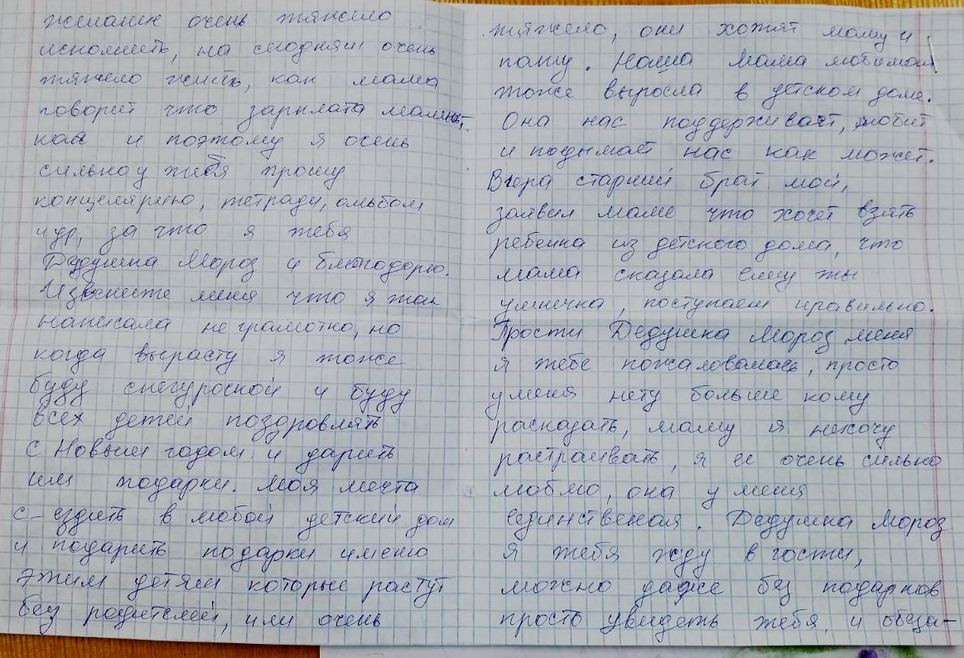 желание очень тяжело
исполнить, на сегодняш очень
тяжело жить, как мама
говорит что зарплата малень,
кая и поэтому я очень
сильно у тебя прошу
концелярию, тетради, альбом
и др, за что я тебя
Дедушка Мороз и благодорю.
Извените меня что я так
написала не грамотно, но
когда вырасту я тоже
буду снегурочкой и буду
всех детей поздровлять
С Новым годом и дарить
им подарки. Моя мечта
с-ездить в любой детский дом
и подарить подарки имено
этим детям которые растут
без родителей, или очень
тяжело, они хотят маму и
папу. Наша мама любимая
тоже выросла в дтском доме.
Она нас поддерживает, любит
и подымает нас как может.
Вчера старший брат мой,
заявил маме что хочет взять
ребенка из детского дома, что
мама сказала ему ты
умничка, поступаеш правильно.
Прости Дедушка Мороз меня
я тебе пожаловалась, просто
у меня нету больше кому
расказать, маму я нехочу
растраивать, я ее очень сильно
люблю, она у меня
единственая. Дедушка Мороз
я тебя жду в гости,
можно даже без подарков
просто увидеть тебя и обеща-